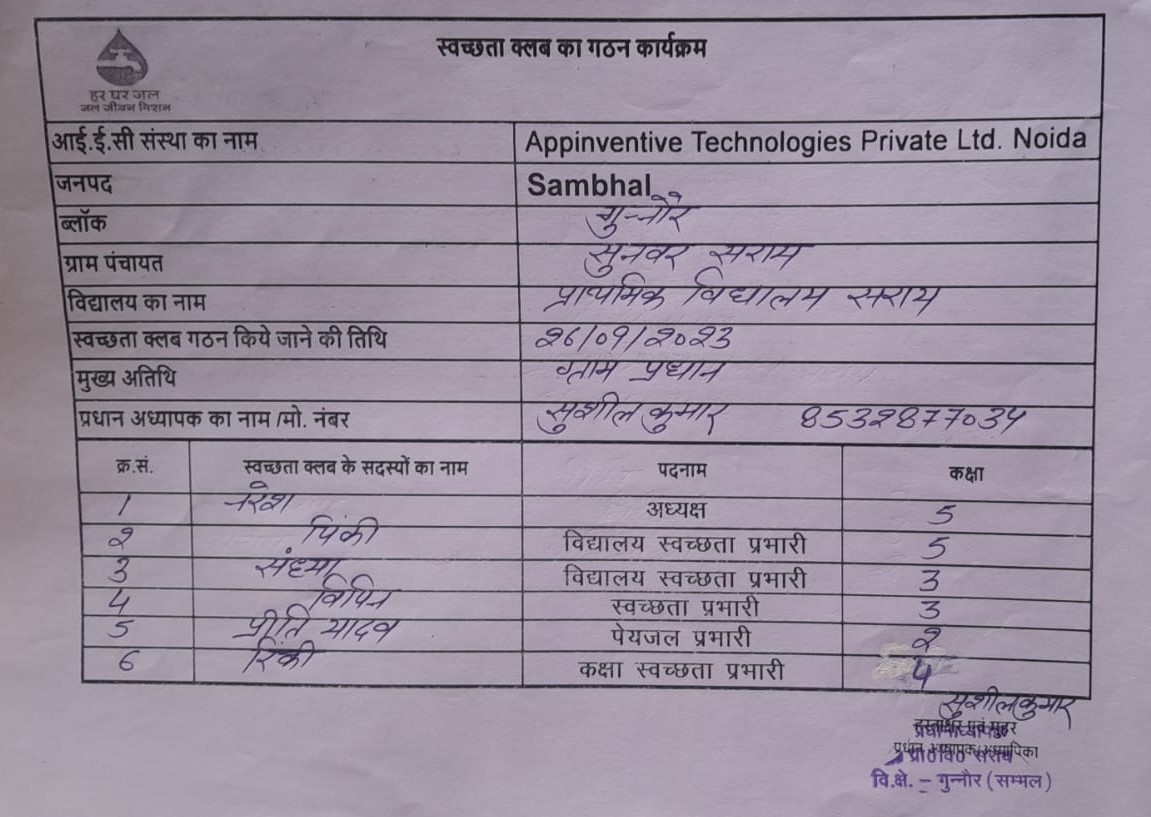 स्वच्छता क्लब का गठन कार्यक्रम
हर घर जल
जल जीवन मिशन
आई.ई.सी संस्था का नाम Appinventive Technologies Private Ltd. Noida
जनपद Sambhal
ब्लॉक गुन्नौर
ग्राम पंचायत सुनवर सराय
विद्यालय का नाम प्राथमिक विद्यालय सराय
स्वच्छता क्लब गठन किये जाने की तिथि 26/09/2023
मुख्य अतिथि ग्राम प्रधान
प्रधान अध्यापक का नाम /मो. नंबर सुशील कुमार 8532877034
क्र.सं. स्वच्छता क्लब के सदस्यों का नाम पदनाम कक्षा
1 नरेश अध्यक्ष 5
2 पिंकी विद्यालय स्वच्छता प्रभारी 5
3 संध्या विद्यालय स्वच्छता प्रभारी 3
4 विपिन स्वच्छता प्रभारी 3
5 प्रीति यादव पेयजल प्रभारी 2
6 रिंकी कक्षा स्वच्छता प्रभारी 4
सुशील कुमार
हस्ताक्षर एवं मुहर
प्रधानाध्यापक
प्रधान अध्यापक/अध्यापिका
प्रा०वि० सराय
वि.क्षे. – गुन्नौर (सम्भल)